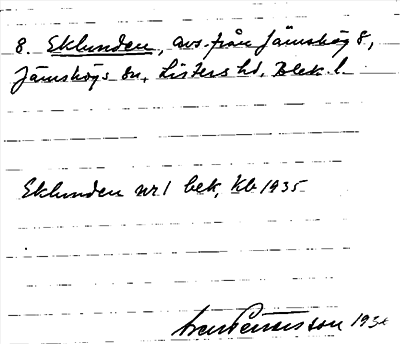 8. Eklunden, avs. från Jämshög 8,
Jämshögs sn, Listers hd. Blek. l.
Eklunden nr 1 bek, Kb 1935